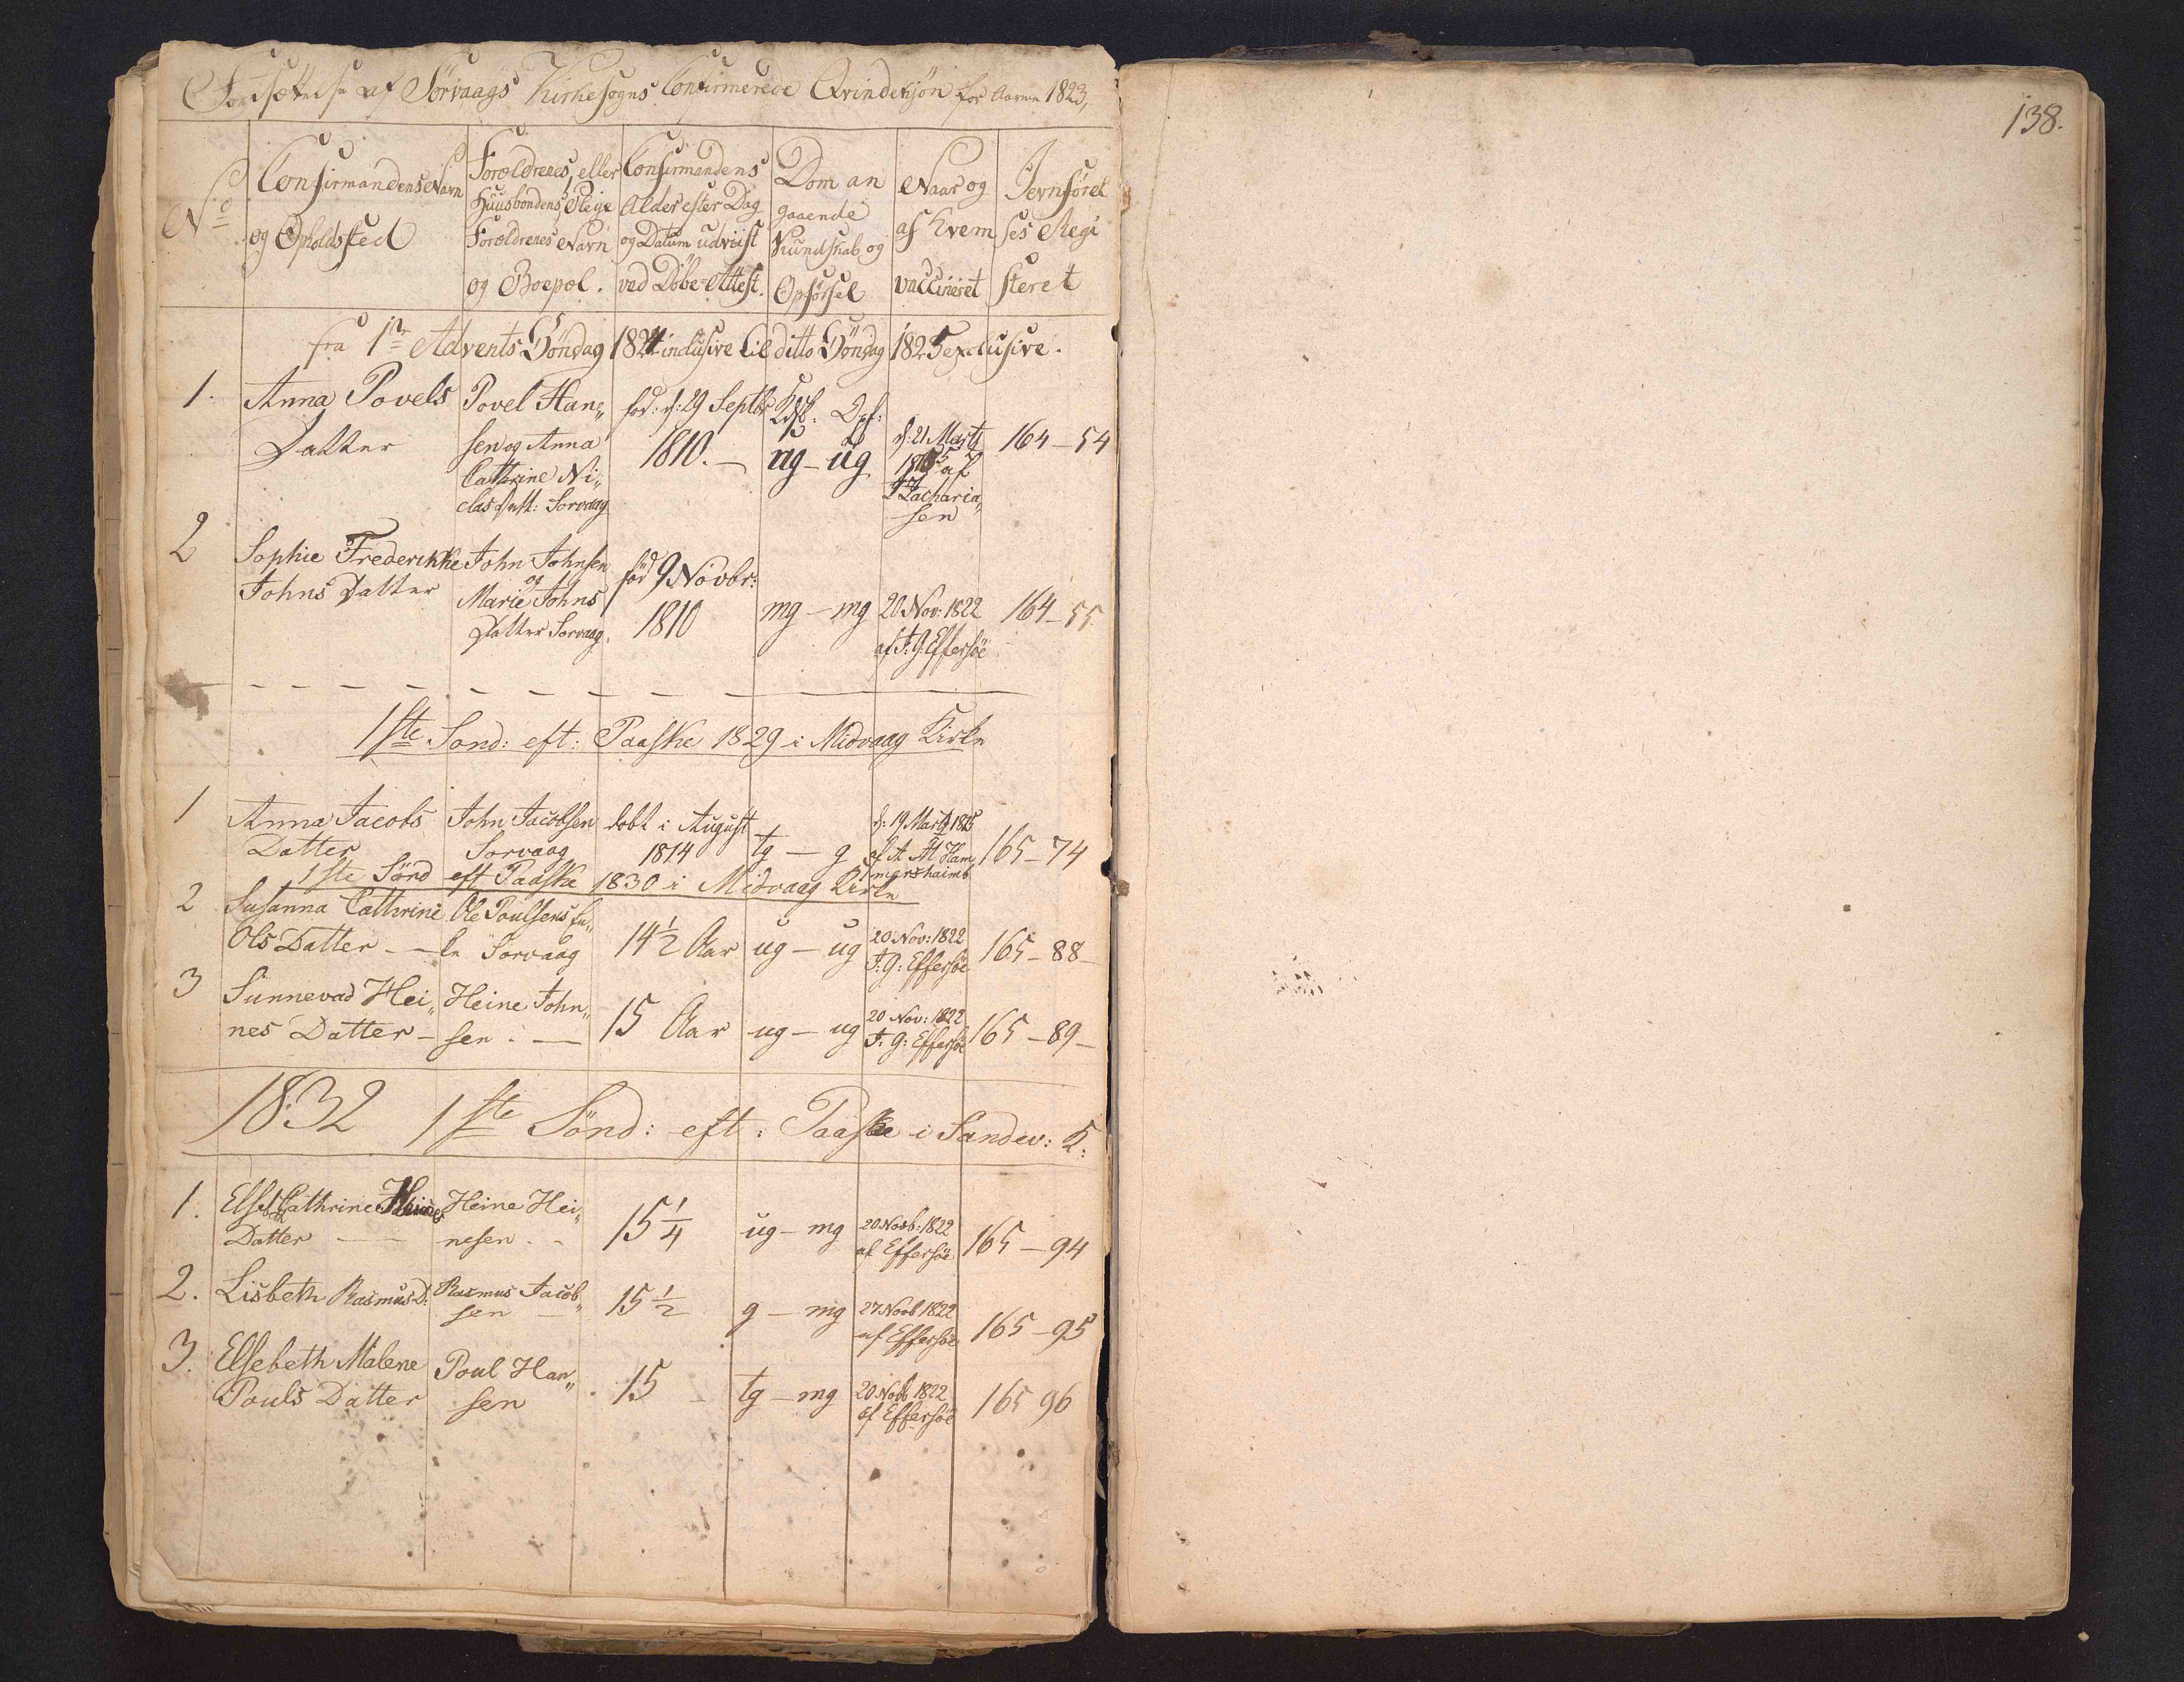 Fortsættelse af Sörvaags Kirkesogns Confirmerede Qvindekjön for Aarene 1823,
No
Confirmandens Navn
og Opholdssted
Forældrenes, eller
Huusbondens, Pleje
Forældrenes Navn
og Boepæl.
Confirmandens
Alder efter Dag
og Datum udviist
ved Döbe-Attest.
Dom an
gaaende
Kundskab og
Opförsel
Naar og
af hvem
vaccineret
Jevnföret
ses Regi
steret
fra 1te Advents Söndag 1824 inclusive til ditto Söndag 1825 exclusive.
1.
Anna Povels
Datter
Povel Han„
sen og Anna
Cathrine Ni„
clas Datt: Sorvaag
fod: d: 29 Septbr
1810. —
Kdsk: Opf:
ug — ug
d: 21 Marts
af
Zacharia„
sen
164 — 54
2
Sophie Frederikke
Johns Datter
John Johnsen
og
Marie Johns
Datter Sorvaag.
föd 9 Novbr:
1810
mg — mg
20 Nov: 1822
af J: G. Effersöe
164 — 55
1ste Sond: eft: Paaske 1829 i Midvaag Kirke
1
Anna Jacobs
Datter
John Jacobsen
Sorvaag
dobt i August
1814
tg — g
d: 19 Marts 1815
af A M Ham
mershaimb
165 — 74
1ste Sönd eft Paaske 1830 i Midvaag Kirke
2
Susanna Cathrine
Ols Datter — —
Ole Poulsens En„
ke Sorvaag
14 1/2 Aar
ug — ug
20 Nov: 1822
J: G: Effersöe
165 — 88 —
3
Sunnevad Hei„
nes Datter —
Heine John„
sen . —
15 Aar
ug — ug
20 Nov: 1822
J: G: Effersöe
165 — 89 —
1832 1ste Sönd: eft: Paaske i Sandev: K:
1.
Elseb Cathrine Heines
Datter — —
Heine Hei„
nesen . -
15 1/4
ug — mg
20 Novb: 1822
af Effersöe
165 — 94
2.
Lisbeth Rasmus D:
Rasmus Jacob„
sen —
15 1/2
g — mg
27 Novb 1822
af Effersöe
165 — 95
3.
Elsebeth Malene
Pouls Datter
Poul Han„
sen
15 —
tg — mg
20 Novb 1822
af Effersöe
165 96
138.